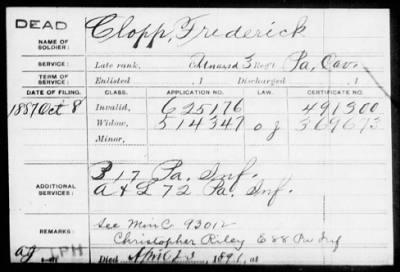 DEAD
NAME OF SOLDIER: Clopp, Frederick
SERVICE: Late rank, Unasd 3 Reg't Pa, Cav.
TERM OF SERVICE: Enlisted , 1 Discharged , 1
DATE OF FILING. CLASS. APPLICATION NO. LAW. CERTIFICATE NO.
1887 Oct 8 Invalid, 625176 491300
Widow, 514347 369673
Minor,
ADDITIONAL SERVICES: B 17 Pa. Inf.
A & L 72 Pa. Inf.
REMARKS: See Min C 93012
Christopher Riley E 88 Pa Inf
Died 189 , at